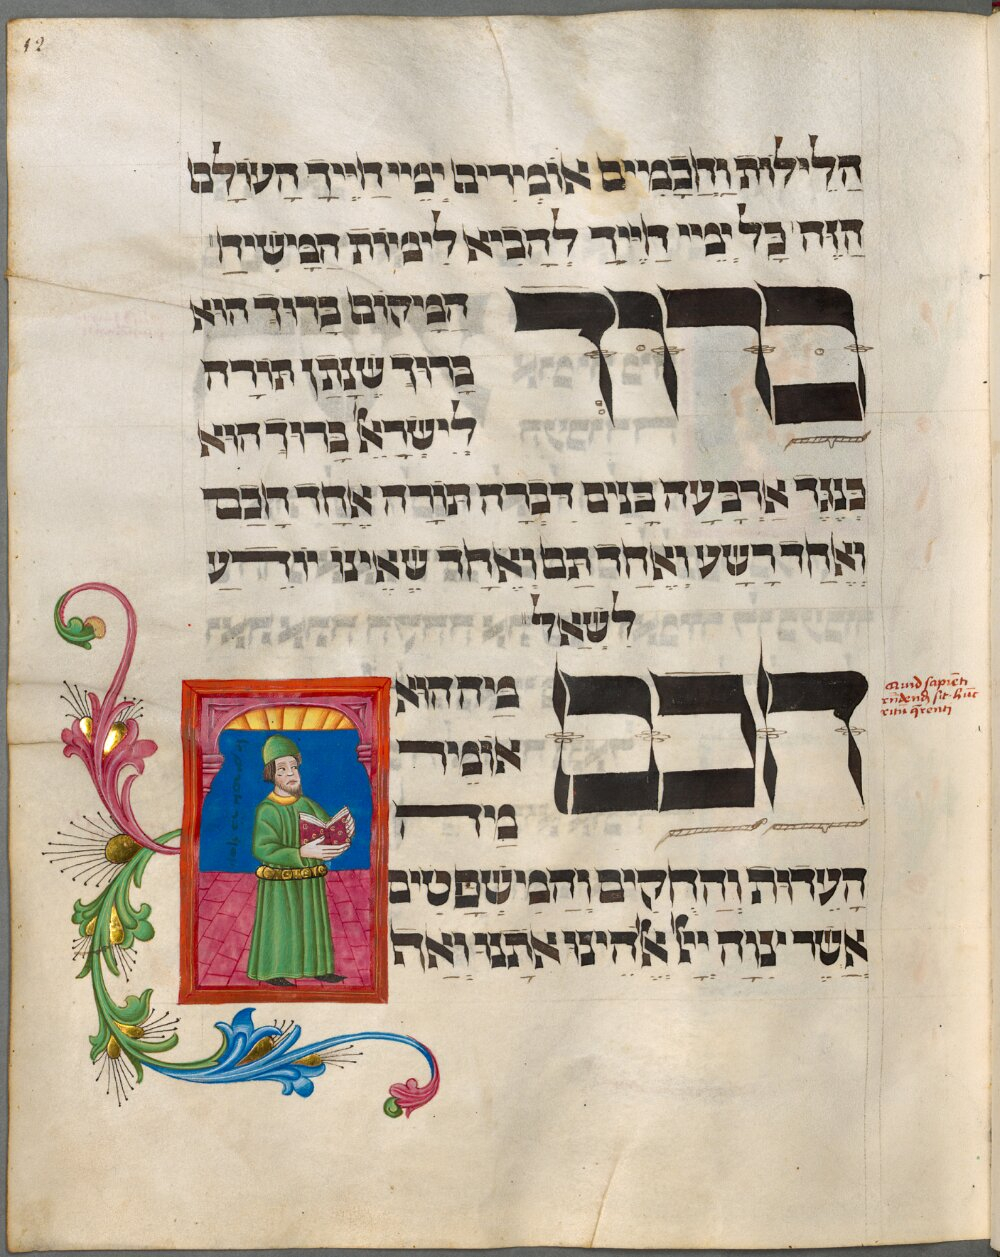 12
הַלֵילוֹת וַחֲכָמִים אוֹמְרִים יְמֵי חַיֶיךָ הָעוֹלָם
הַזֶה כָל יְמֵי חַיֶיךָ לְהָבִיא לִימוֹת הַמָשִיחַ
בָרוּךְ הַמָקוֹם בָרוּךְ הוּא
בָרוּךְ שֶנָתַן תוֹרָה
לְיִשְרָאֵל בָרוּךְ הוּא
כְנֶגֶד אַרְבָעָה בָנִים דִבְרָה תוֹרָה אֶחָד חָכָם
וְאֶחָד רָשָע וְאֶחָד תָם וְאֶחָד שֶאֵינוֹ יוֹדֵעַ
לִשְאַל
חָכָם מַה הוּא
אוֹמֵר
מָה
הָעֵדוֹת וְהַחֻקִים וְהַמִשְפָטִים
אֲשֶר צִוָה יְיָ אֱלֹהֵינוּ אֶתְנוּ וְאַף
Quid sapienti
rñdendū sit hūc
ritū q̄renti